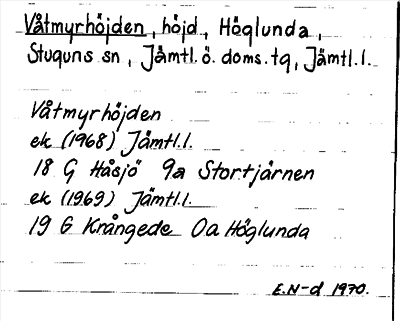 Våtmyrhöjden, höjd, Höglunda,
Stuguns sn, Jämtl. ö. doms. tg, Jämtl. l.
Våtmyrhöjden
ek (1968) Jämtl. l.
18 G Håsjö 9a Stortjärnen
ek (1969) Jämtl. l.
19 G Krångede 0a Höglunda
E. N-d 1970.